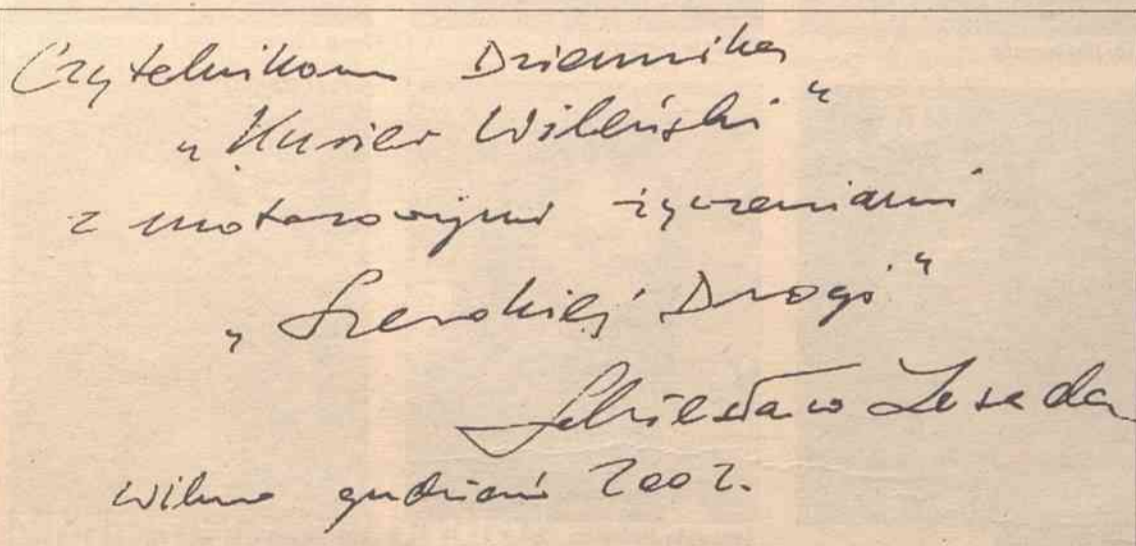 Czytelnikom Dziennika
„Kurier Wileński”
z motorowymi życzeniami
„Szerokiej Drogi”
Sobiesław Zasada
Wilno grudzień 2002.